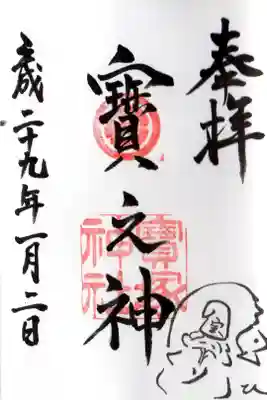 奉拝
寶之神
寶塚
神社
平成二十九年一月二日